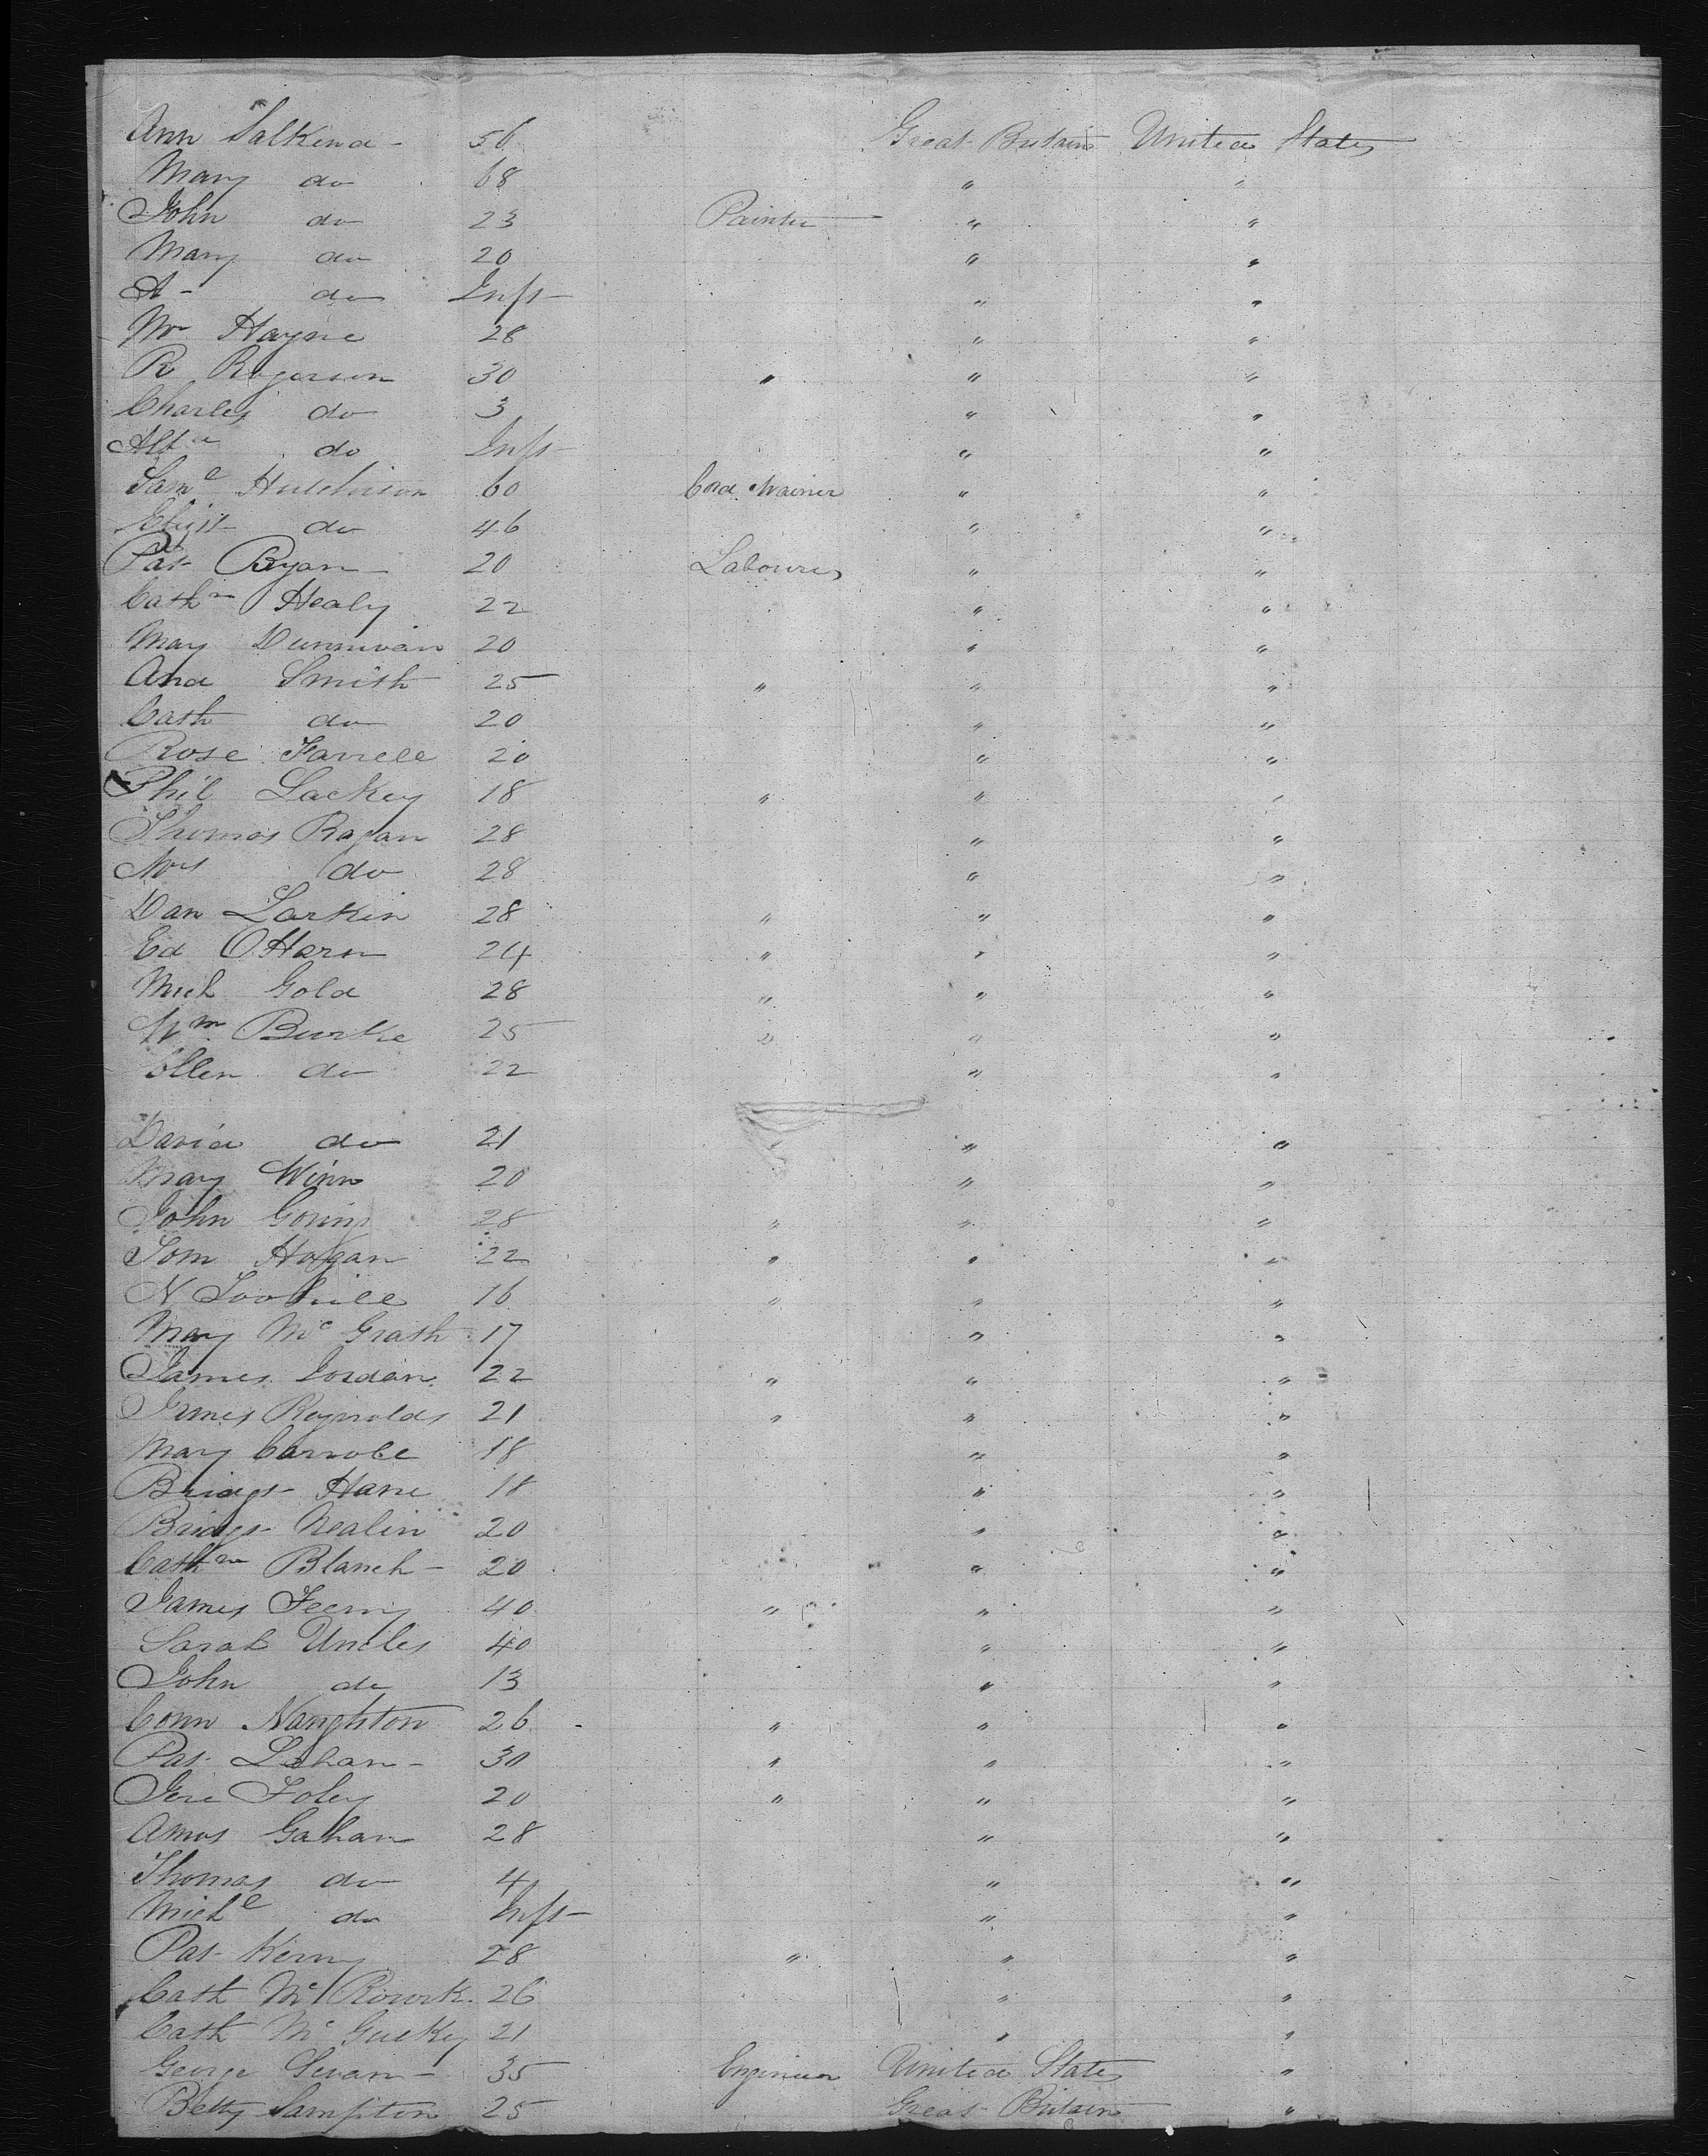 Ann Salkend - 56 Great Britain United States
Mary do 68 " "
John do 23 Painter " "
Mary do 20 " "
A - do Inft " "
Mr Hayne 28 " "
R Rogerson 30 " " "
Charles do 3 " "
do Inft " "
Saml Hutchison 60 Cord Wainer " "
Elizt do 46 " "
Pat Ryan 20 Labourer " "
Cathne Healy 22 " "
Mary Dunnivan 20 " "
And Smith 25 " " "
Cath do 20 " "
Rose Farrell 20 " "
Phil Lackey 18 " " "
Thomas Ragan 28 " "
Mrs do 28 " "
Dan Larkin 28 " " "
Ed OHara 24 " " "
Mich Gold 28 " " "
Wm Burke 25 " " "
Ellen do 22 " "
David do 21 " "
Mary Winn 20 " "
John Goring 28 " " "
Tom Hogan 22 " " "
N Toohill 16 " " "
Mary Mc Grath 17 " "
James Jordan 22 " " "
James Reynolds 21 " " "
Mary Carroll 18 " "
Bridgt Hane 18 " "
Bridgt Nealin 20 " "
Cathne Blanch - 20 " "
James Feeny 40 " " "
Sarah Uncles 40 " "
John do 13 " "
Conn Naughton 26 " " "
Pat Lehan - 30 " " "
Jere Foley 20 " " "
Amos Gahan 28 " "
Thomas do 4 " "
Michl do Inft " "
Pat Kerny 28 " " "
Cath Mc Rourk 26 " "
Cath Mc Guckey 21 " "
George Sevan - 35 Engineer United States "
Betty Sampton 25 Great Britain "